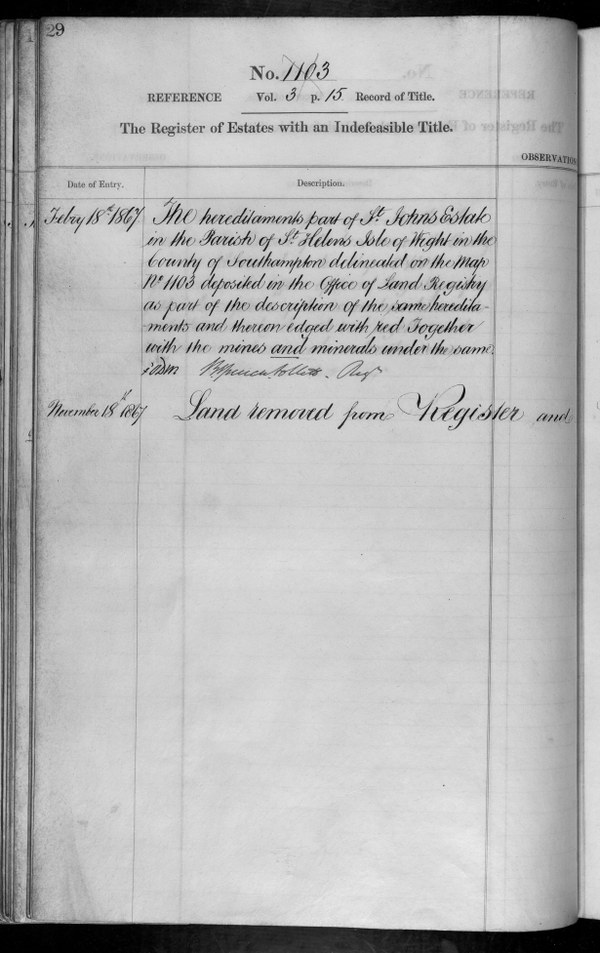 29
No. 1103
REFERENCE Vol. 3 p. 15 Record of Title.
The Register of Estates with an Indefeasible Title.
OBSERVATION
Date of Entry. Description.
Febry 18th 1867 The hereditaments part of St. Johns Estate
in the Parish of St. Helens Isle of Wight in the
County of Southampton delineated on the Map
No 1103 deposited in the Office of Land Registry
as part of the description of the same heredita-
ments and thereon edged with red Together
with the mines and minerals under the same.
Regr
November 18th 1867 Land removed from Register and